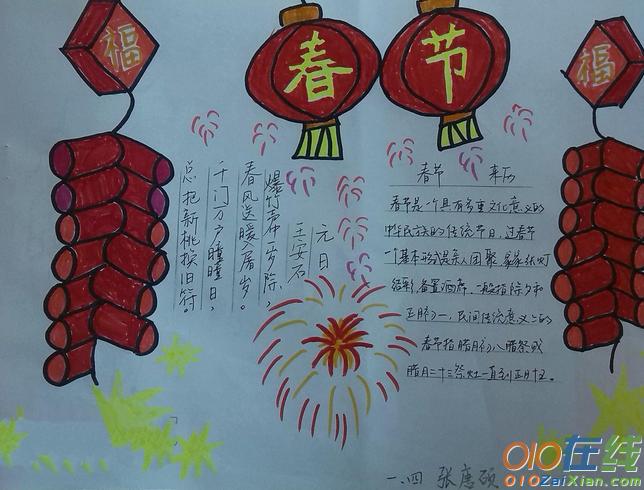 福
春
节
福
元日
王安石
爆竹声中一岁除,
春风送暖入屠岁。
千门万户瞳瞳日,
总把新桃换旧符。
春节 来历
春节是一个具有多重文化意义的
中华民族的传统节日,过春节
一个基本形式是亲人团聚,家家张灯
结彩,备置酒席.一般指除夕和
正月初一,民间传统意义上的
春节指腊月初八腊祭或
腊月二十三祭灶一直到正月十五.
一、四 张 硕
010在线
010ZaiXian.com